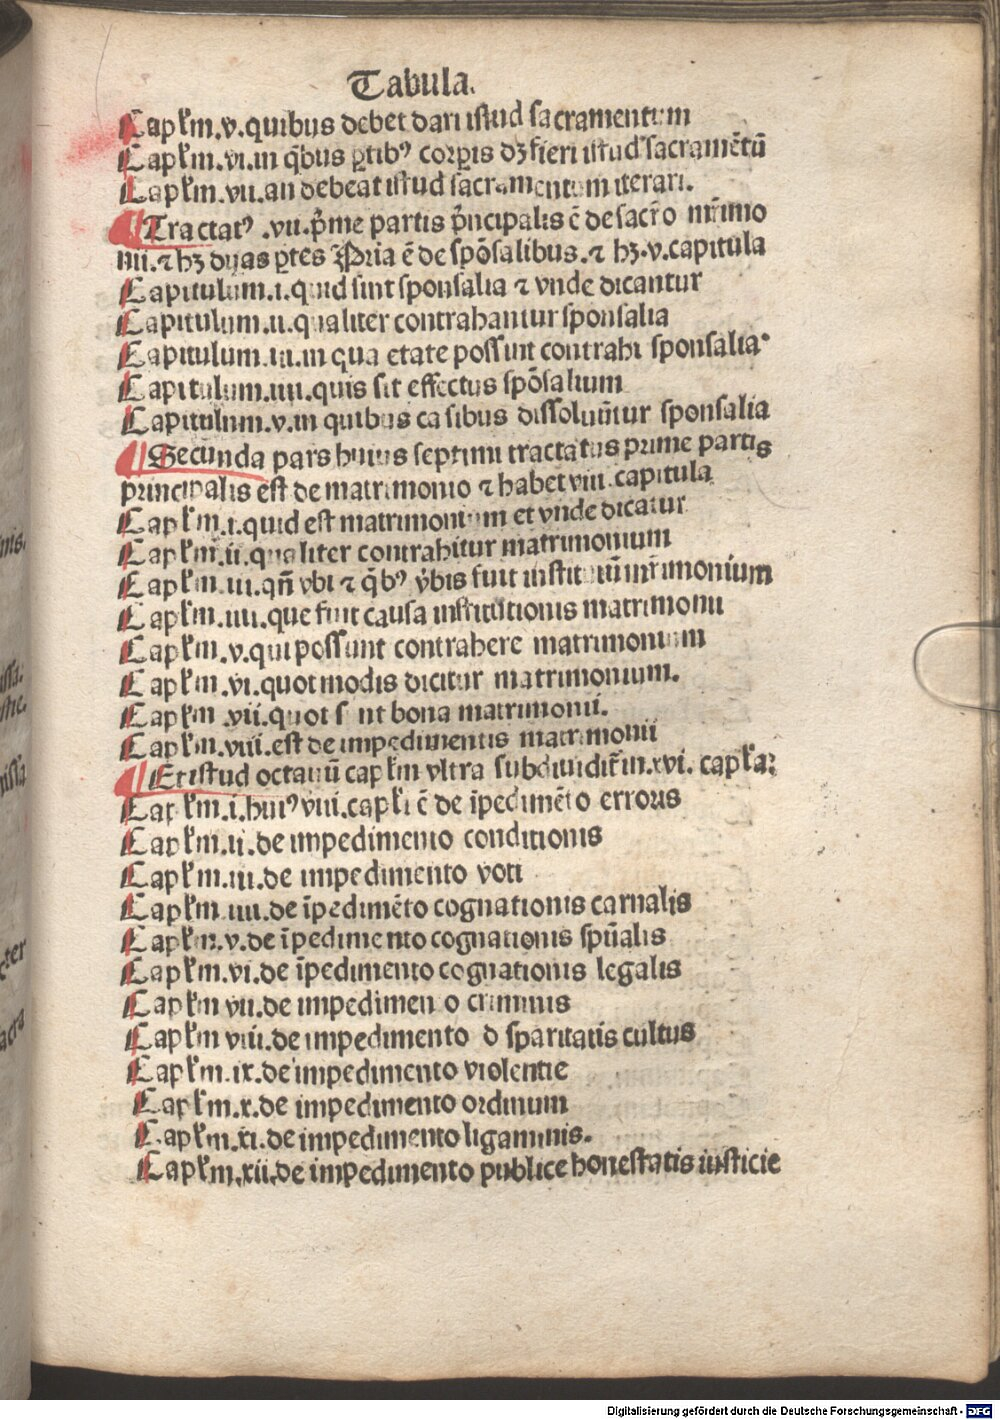 Tabula.
Capłm.v.quibus debet dari istud sacramentum
Capłm.vi.in q̄bus ꝑtibꝰ corꝑis dꝫ fieri istud sacramētū
Capłm.vii.an debeat istud sacramentum iterari.
¶Tractatꝰ .vii.p̄me partis p̄ncipalis ē de sacr̄o mr̄imo
nii.⁊ hꝫ duas ꝑtes Pria ē de spōsalibus.⁊ hꝫ.v.capitula
Capitulum.i.quid sint sponsalia ⁊ vnde dicantur
Capitulum.ii.qualiter contrahantur sponsalia
Capitulum.iii.in qua etate possunt contrahi sponsalia.
Capitulum.iiii.quis sit effectus spōsalium
Capitulum.v.in quibus casibus dissoluūtur sponsalia
¶Secunda pars huius septimi tractatus prime partis
principalis est de matrimonio ⁊ habet viii.capitula
Capłm.i.quid est matrimonium et vnde dicatur
Capłm.ii.qualiter contrahitur matrimonium
Capłm.iii.qn̄ vbi ⁊ q̄bꝰ v̄bis fuit institutū mr̄imonium
Capłm.iiii.que fuit causa institutionis matrimonii
Capłm.v.qui possunt contrahere matrimonium
Capłm.vi.quot modis dicitur matrimonium.
Capłm.vii.quot s nt bona matrimonii.
Capłm.viii.est de impedimentis matrimonii
¶Et istud octauū capłm vltra subdiuidit̄ in.xvi. capła;
Capłm.i.huiꝰ viii.capłi ē de īpedimēto erroris
Capłm.ii.de impedimento conditionis
Capłm.iii.de impedimento voti
Capłm.iiii.de īpedimēto cognationis carnalis
Capłm.v.de īpedimento cognationis spūalis
Capłm.vi.de īpedimento cognationis legalis
Capłm vii.de impedimen o criminis
Capłm viii.de impedimento d sparitatis cultus
Capłm.ix.de impedimento violentie
Capłm.x.de impedimento ordinum
Capłm.xi.de impedimento ligaminis.
Capłm.xii.de impedimento publice honestatis iusticie
Digitalisierung gefördert durch die Deutsche Forschungsgemeinschaft - DFG